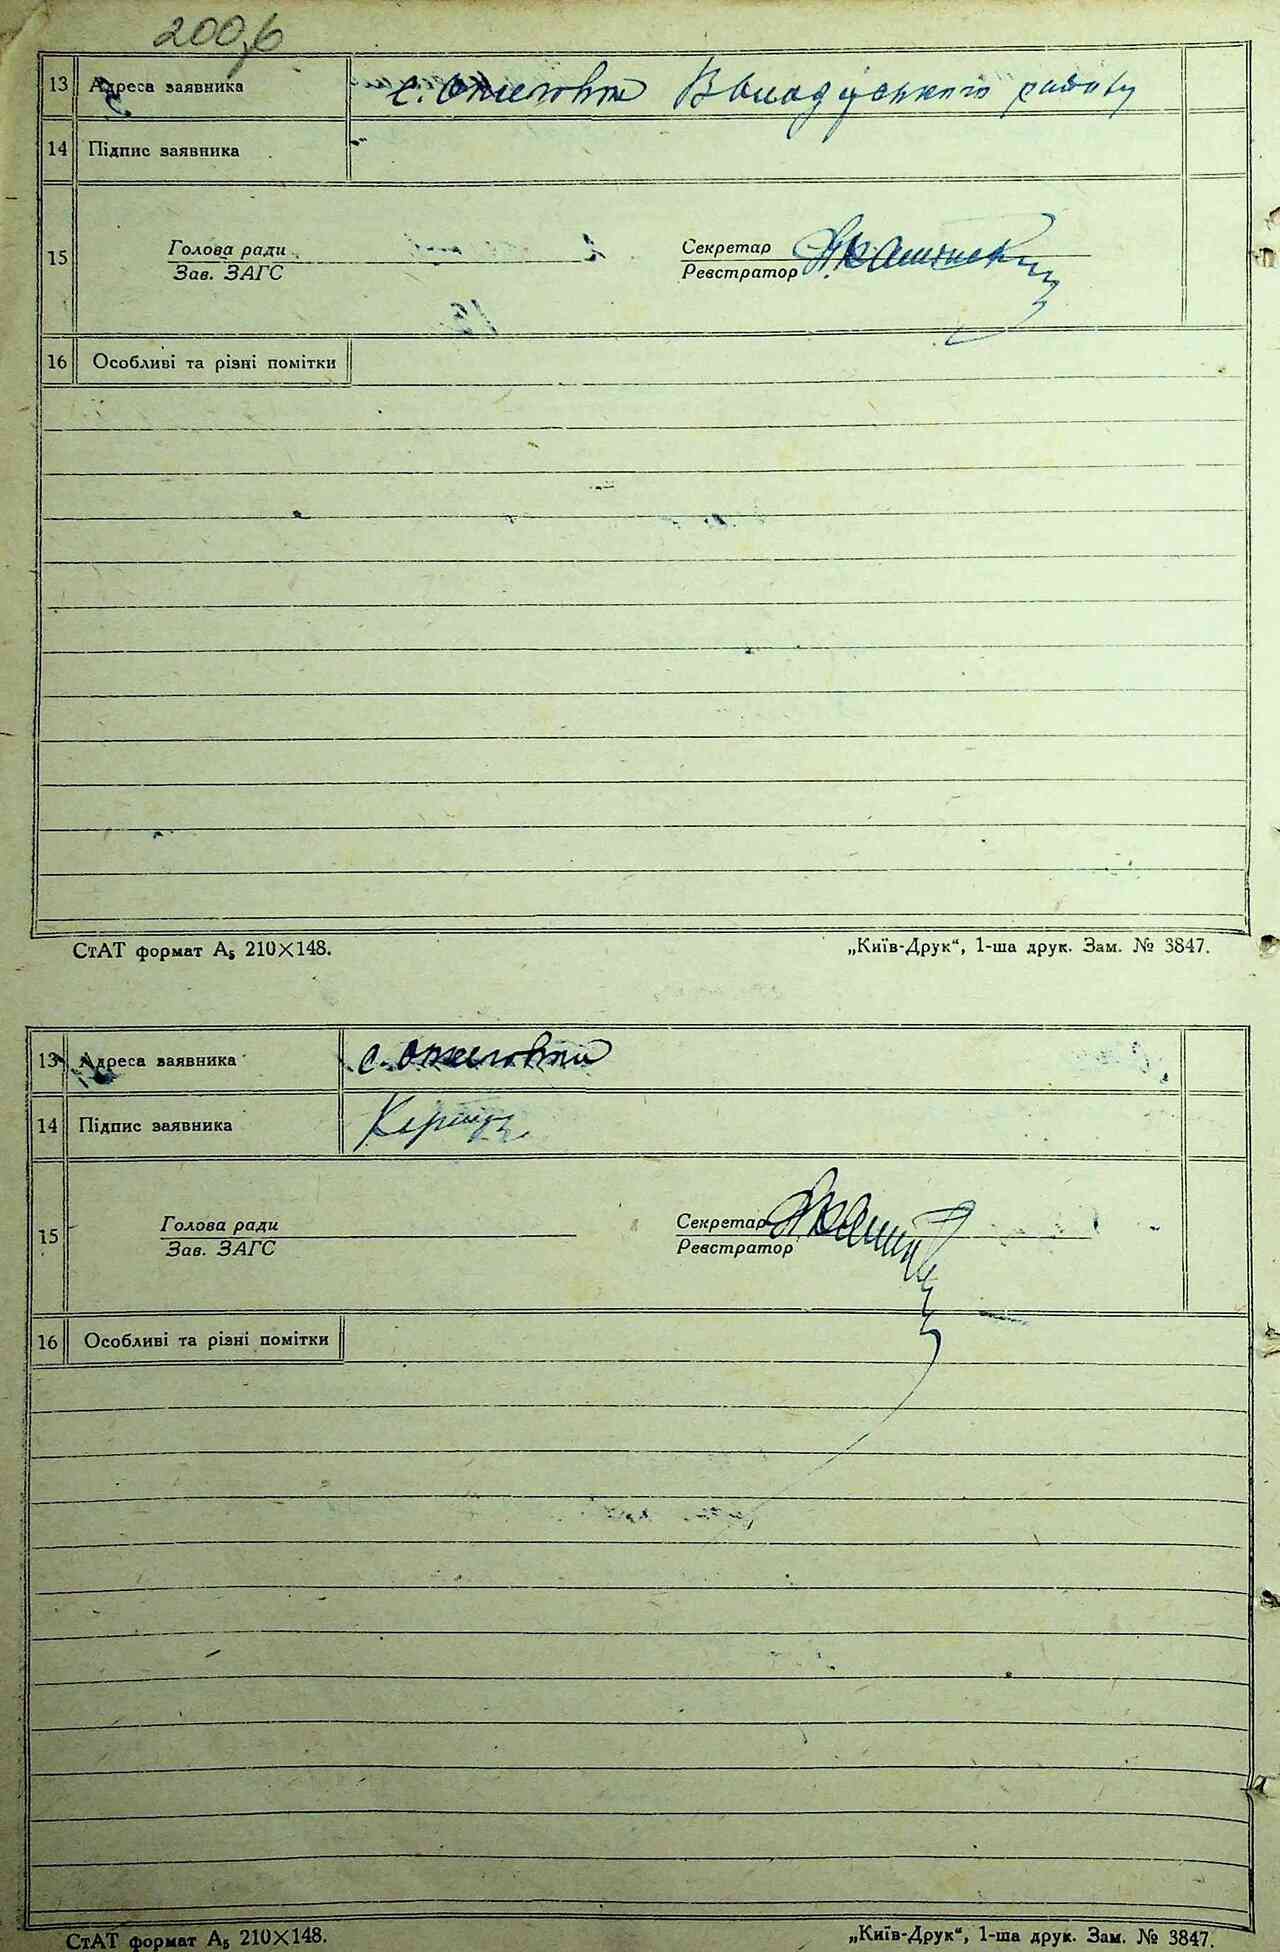 200,6
13 Адреса заявника с. Ожегівка Володарського району
14 Підпис заявника
15 Голова ради Секретар
Зав. ЗАГС Реєстратор
16 Особливі та різні помітки
СтАТ формат А5 210×148. „Київ-Друк“, 1-ша друк. Зам. № 3847.
13 Адреса заявника с. Ожегівка
14 Підпис заявника
15 Голова ради Секретар
Зав. ЗАГС Реєстратор
16 Особливі та різні помітки
СтАТ формат А5 210×148. „Київ-Друк“, 1-ша друк. Зам. № 3847.